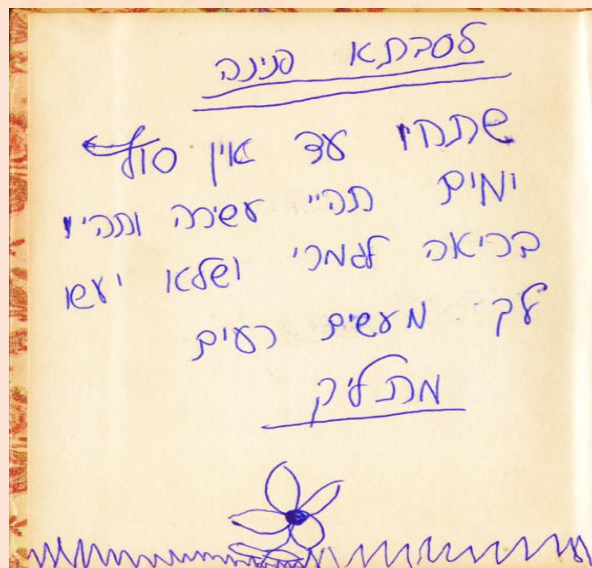 לסבתא פנינה
שתחיי עד אין סוף
ימים תהיי עשירה ותהיי
בריאה לגמרי ושלא יעשו
לך מעשים רעים
מתליק